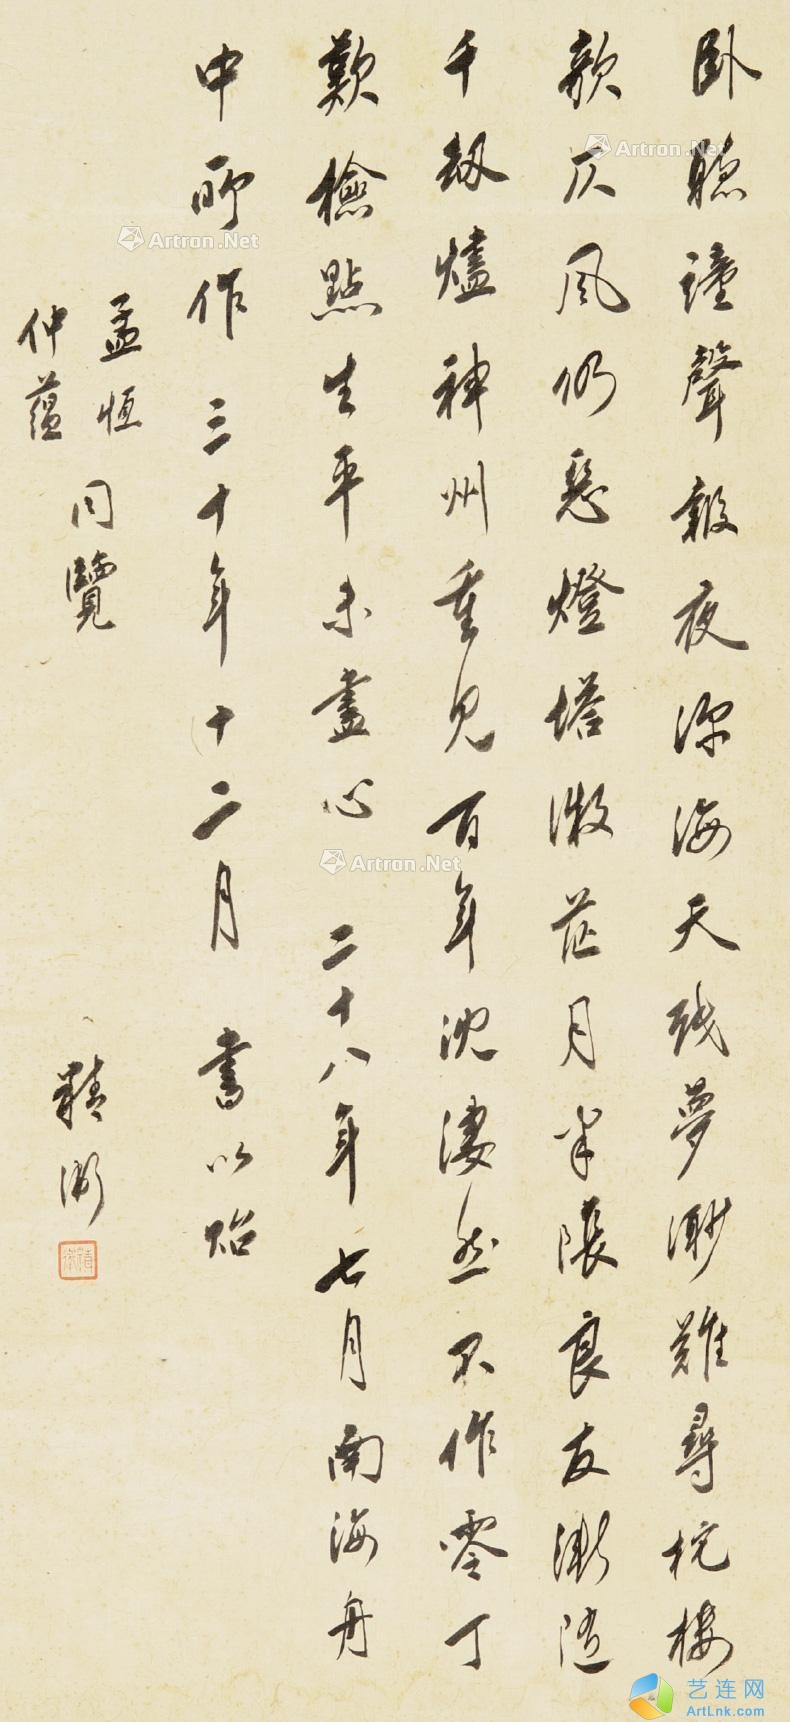 卧聽鐘聲報夜深海天殘夢渺難尋柁樓
欹仄風仍惡燈塔微茫月半陰良友漸隨
千劫燼神州重見百年沈淒然不作零丁
歎檢點生平未盡心 二十八年七月南海舟
中所作 三十年十二月 書以貽
孟恆
仲蘊
同覽
精衛
Artron.Net
Artron.Net
Artron.Net
艺连网
ArtLnk.com